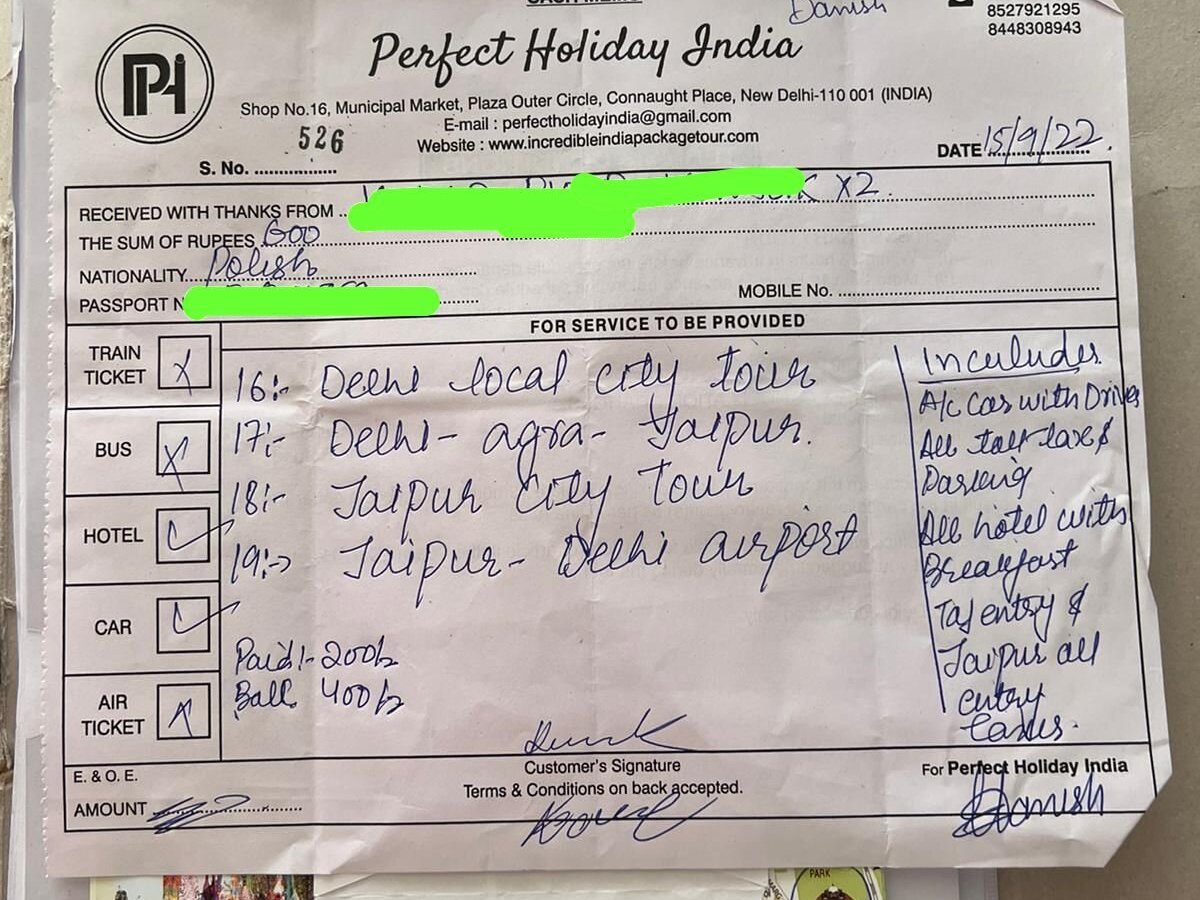 CASH MEMO
Danish
8527921295
8448308943
PHI
Perfect Holiday India
Shop No.16, Municipal Market, Plaza Outer Circle, Connaught Place, New Delhi-110 001 (INDIA)
E-mail : perfectholidayindia@gmail.com
Website : www.incredibleindiapackagetour.com
S. No. 526
DATE 15/9/22
RECEIVED WITH THANKS FROM X2
THE SUM OF RUPEES 600
NATIONALITY Polish
PASSPORT N
MOBILE No.
FOR SERVICE TO BE PROVIDED
TRAIN TICKET X
BUS X
HOTEL
CAR
AIR TICKET X
16:- Delhi local city tour
17:- Delhi- agra- Jaipur.
18:- Jaipur city Tour
19:-> Jaipur- Delhi airport
Paid:- 200/-
Ball 400/-
Inculudes
A/c Car with Driver
All tall taxe &
Parking
All hotel with
Breakfast
Taj entry &
Jaipur all
entry
Taxes.
E. & O.E.
AMOUNT
Customer's Signature
Terms & Conditions on back accepted.
For Perfect Holiday India
Danish
PARK